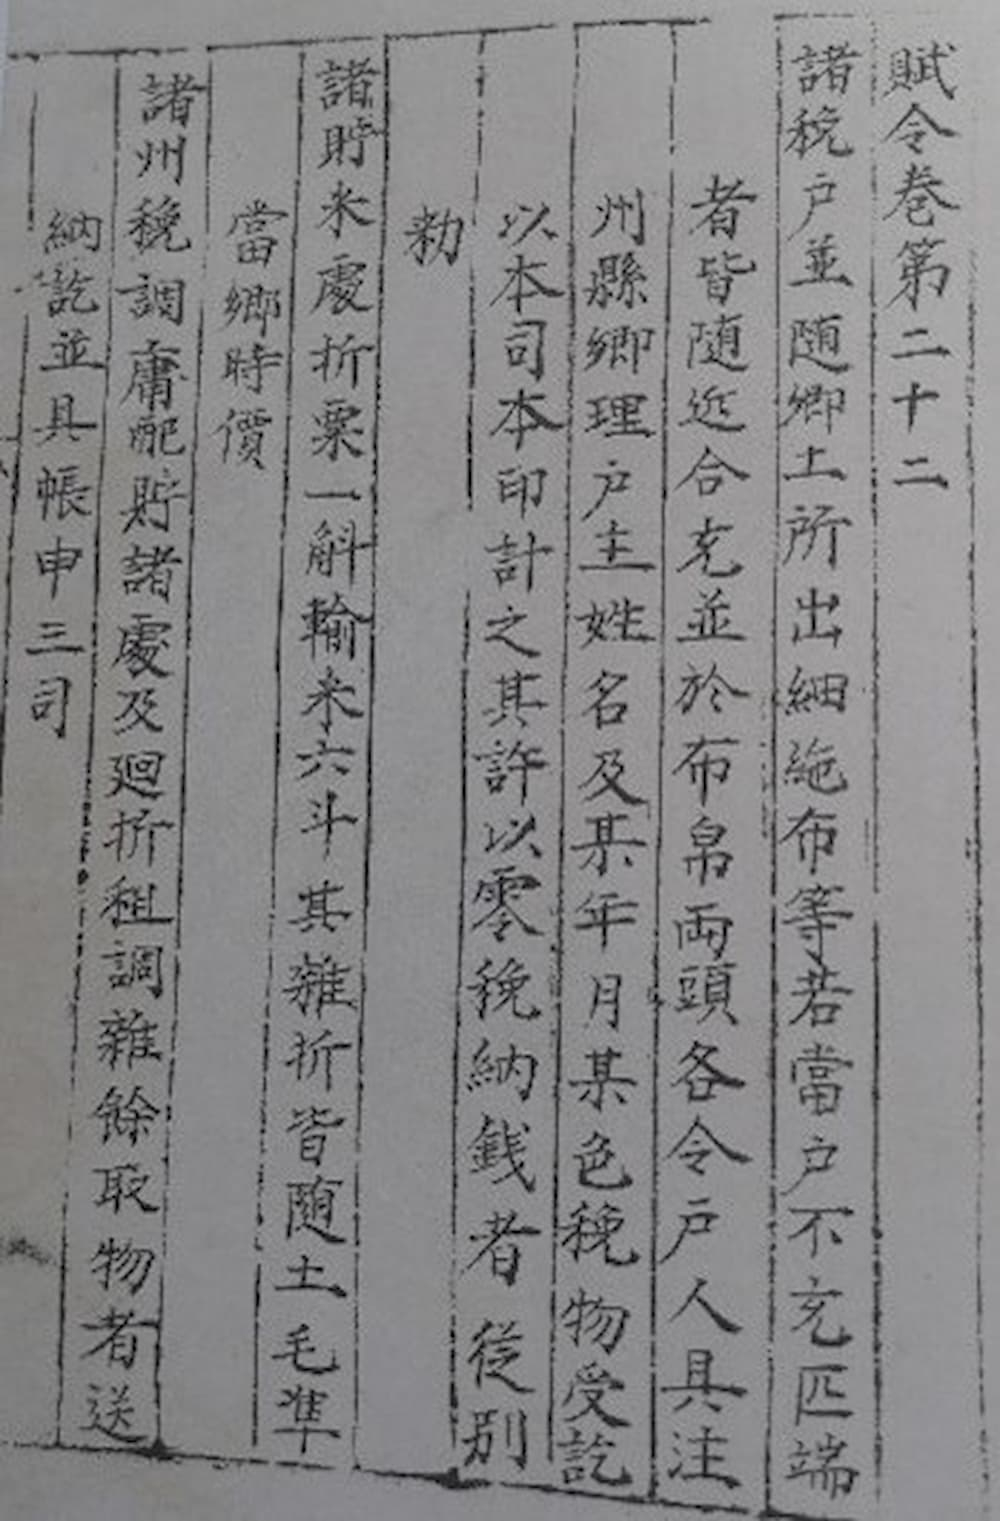 賦令卷第二十二
諸稅户並隨鄉土所出紬絁布等若當户不充匹端
者皆随近合充並於布帛兩頭各令户人具注
州縣鄉理户主姓名及某年月某色稅物受訖
以本司本印計之其許以零稅納錢者從別
勑
諸貯米處折粟一斛輸米六斗其雜折皆随土毛準
當鄉時價
諸州稅調庸配貯諸處及迴折租調雜餘取物者送
納訖並具帳申三司